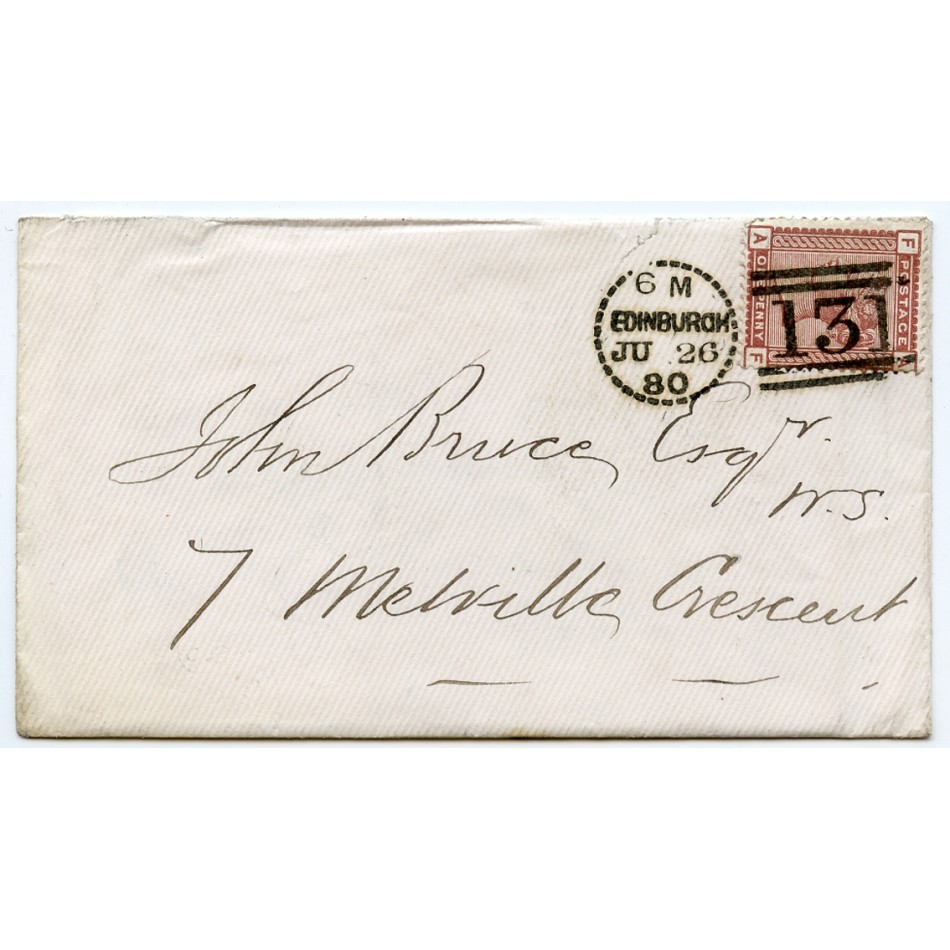 6 M
EDINBURGH
JU 26
80
A F
ONE PENNY
POSTAGE
F A
131
John Bruce Esqr.
W.S.
7 Melville Crescent